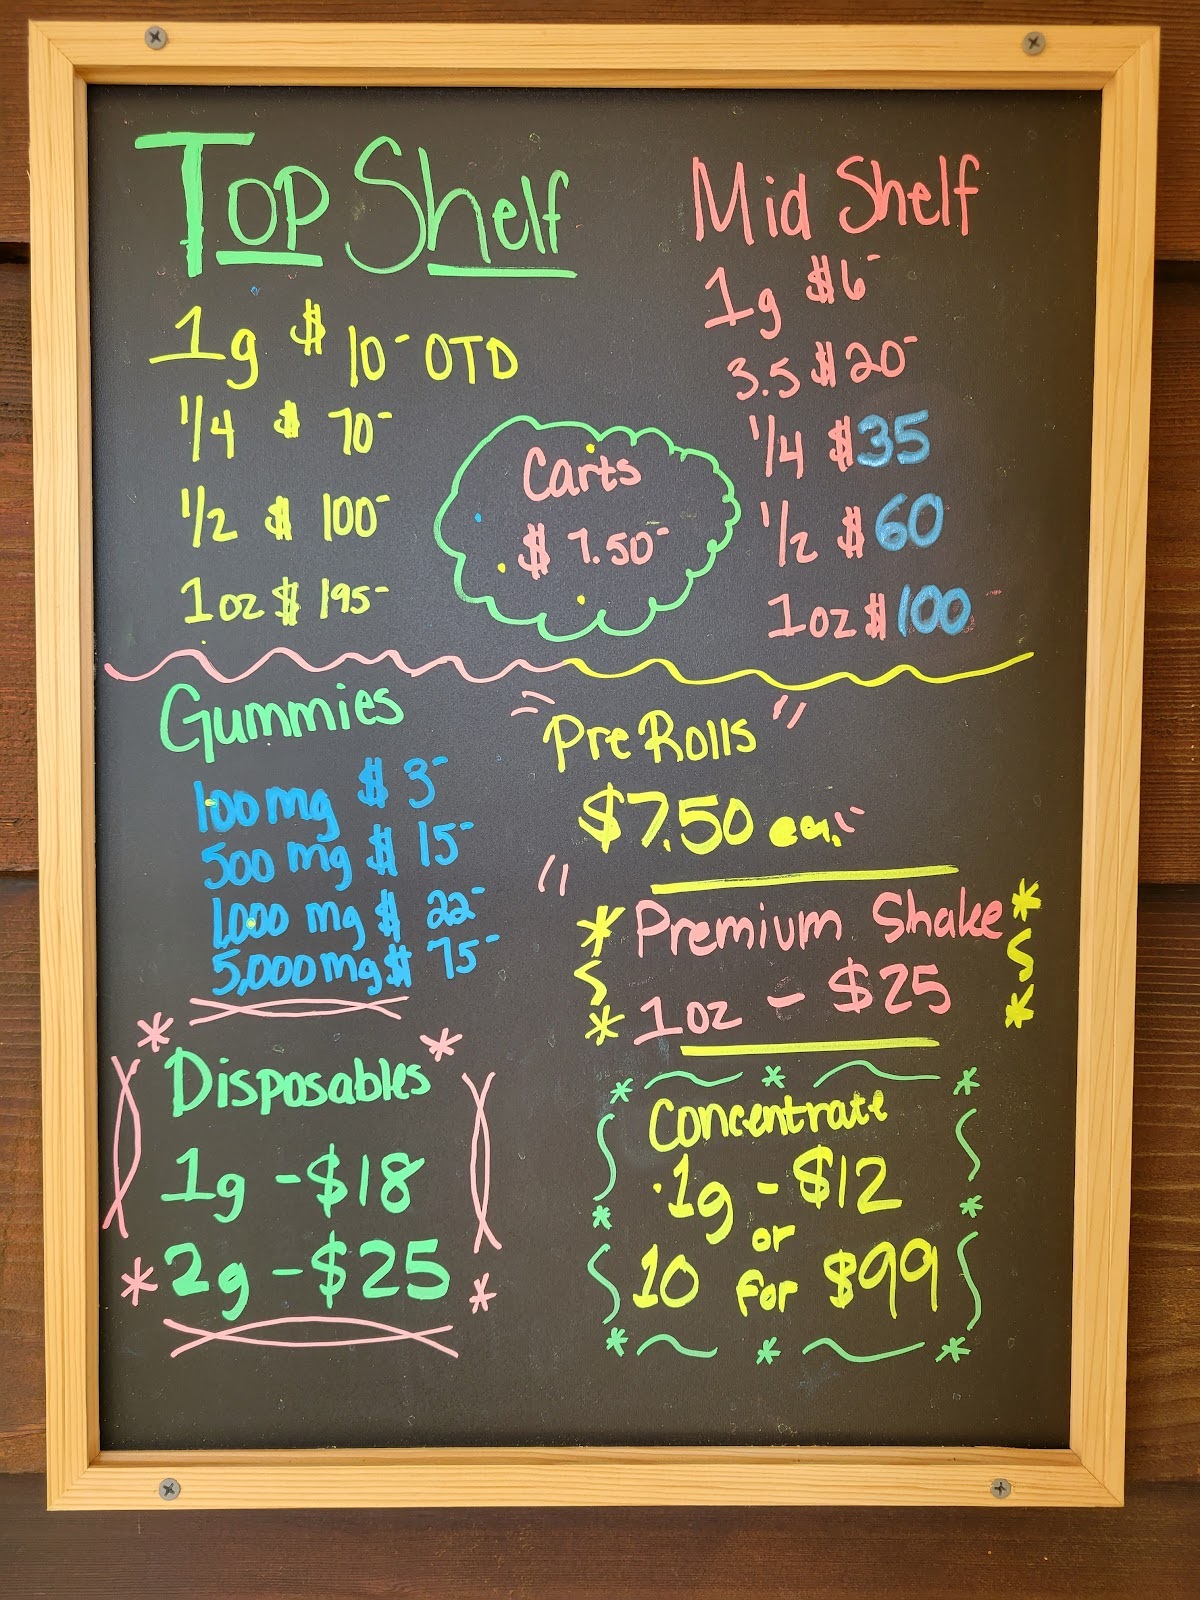 Top Shelf
1g $10- OTD
1/4 $ 70-
1/2 $ 100-
1oz $ 195-
Carts
$ 7.50-
Mid Shelf
1g $6-
3.5 $20-
1/4 $35
1/2 $60
1oz $100
Gummies
100mg $ 3-
500 mg $ 15-
1,000 mg $ 22-
5,000mg $ 75-
Pre Rolls
$7.50 ea.
Premium Shake
1oz - $25
Disposables
1g - $18
2g - $25
Concentrate
.1g - $12
or
10 for $99